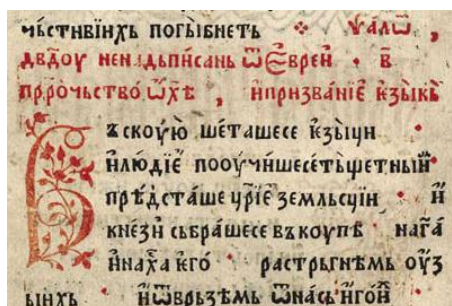 чьстнвіихь погыбнеть ❖ Ѱалѡ҃ ,
двд҃оу ненадьписань ѿ Єврей · в҃
пррⷪ҇чьство, ѡ хѣ , ипризваніѥ ѥзыкь
Вскоую шеташесе ѥзыци
илюдїѥ пооучишесетьщетныиⷨ
прѣдсташе црїѥ земльсціи · и
кнези сьбрашесе вькоупѣ · нагⷭ҇а
инахⷭ҇а ѥго · растрьгнѣмь оуз
ыихь · иѡврьзѣмь ѿнась иго и